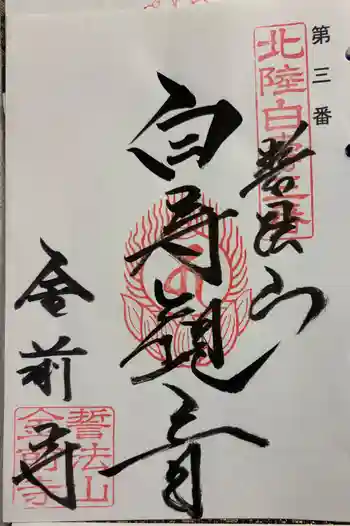 第三番
北陸白寿三番
誓法山
白寿観音
金前寺
誓法山
金前寺